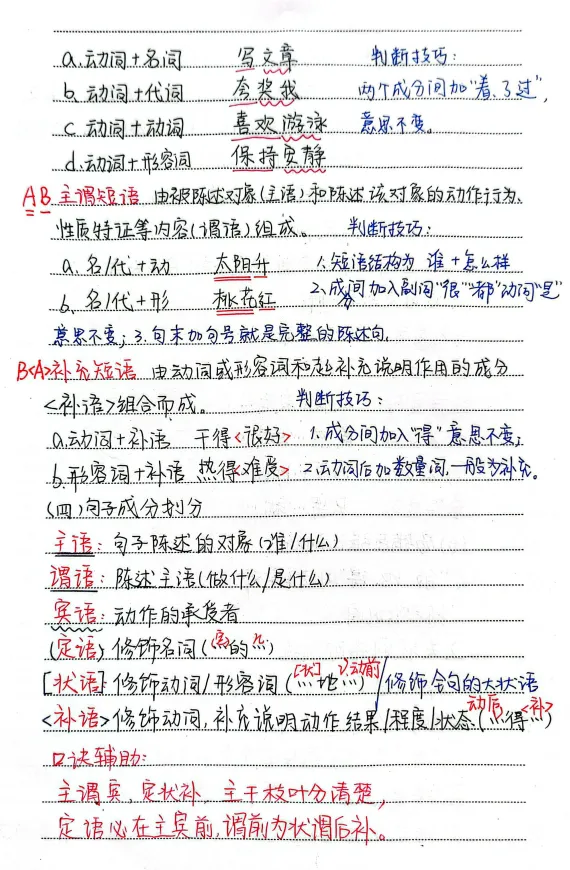 a.动词+名词 写文章 判断技巧:
b.动词+代词 夸奖我 两个成分间加“着、了过”,
c.动词+动词 喜欢游泳 意思不变。
d.动词+形容词 保持安静
AB 主谓短语 由被陈述对象(主语)和陈述该对象的动作行为、
性质特征等内容(谓语)组成。 判断技巧:
a.名/代+动 太阳升 1.短语结构为 谁+怎么样
b.名/代+形 桃花红 2.成分间加入副词“很”“都”动词“是”
意思不变;3.句末加句号就是完整的陈述句.
B<A>补充短语 由动词或形容词和起补充说明作用的成分
<补语>组合而成。 判断技巧:
a.动词+补语 干得<很好> 1.成分间加入“得”意思不变;
b.形容词+补语 热得<难受> 2.动词后加数量词,一般为补充。
(四)句子成分划分
主语:句子陈述的对象(谁/什么)
谓语:陈述主语(做什么/是什么)
宾语:动作的承受者
(定语)修饰名词( 的 )
[状语]修饰动词/形容词([状]地 )动前/修饰全句的大状语
<补语>修饰动词,补充说明动作结果/程度/状态(动后 得<补>)
口诀辅助:
主谓宾,定状补,主干枝叶分清楚,
定语必在主宾前,谓前为状谓后补。